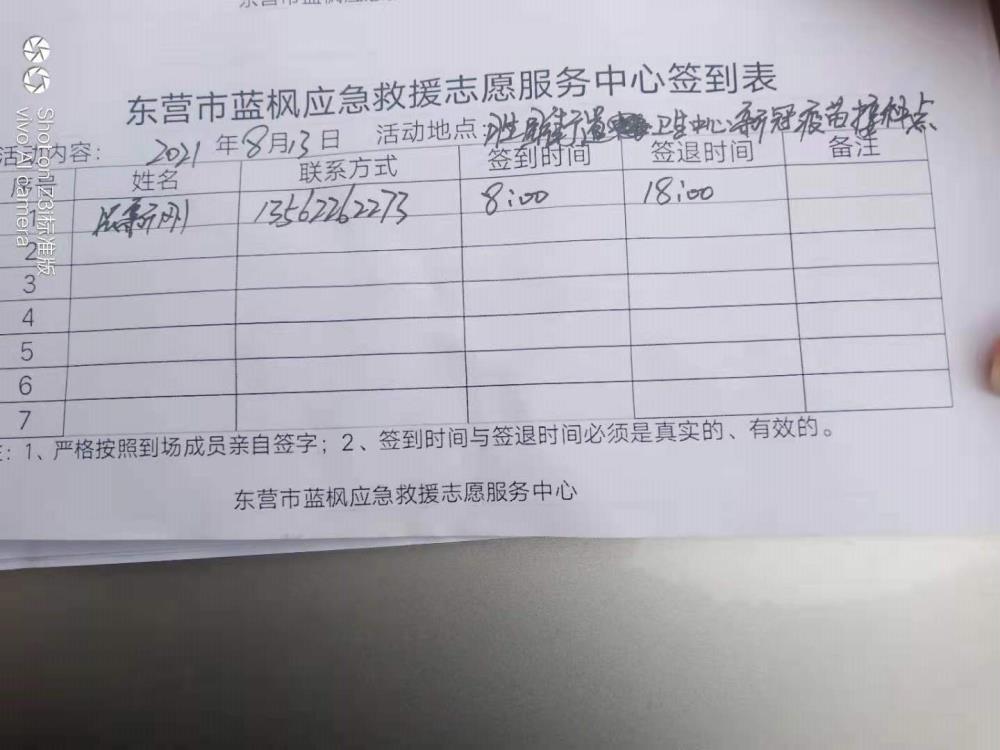 东营市蓝枫应急救援志愿服务中心签到表
活动内容: 2021年8月13日 活动地点: 街道卫生中心新冠疫苗接种点
序号 姓名 联系方式 签到时间 签退时间 备注
1 13562262273 8:00 18:00
2
3
4
5
6
7
注: 1、严格按照到场成员亲自签字; 2、签到时间与签退时间必须是真实的、有效的。
东营市蓝枫应急救援志愿服务中心
Shot on Z3标准版
vivo AI camera